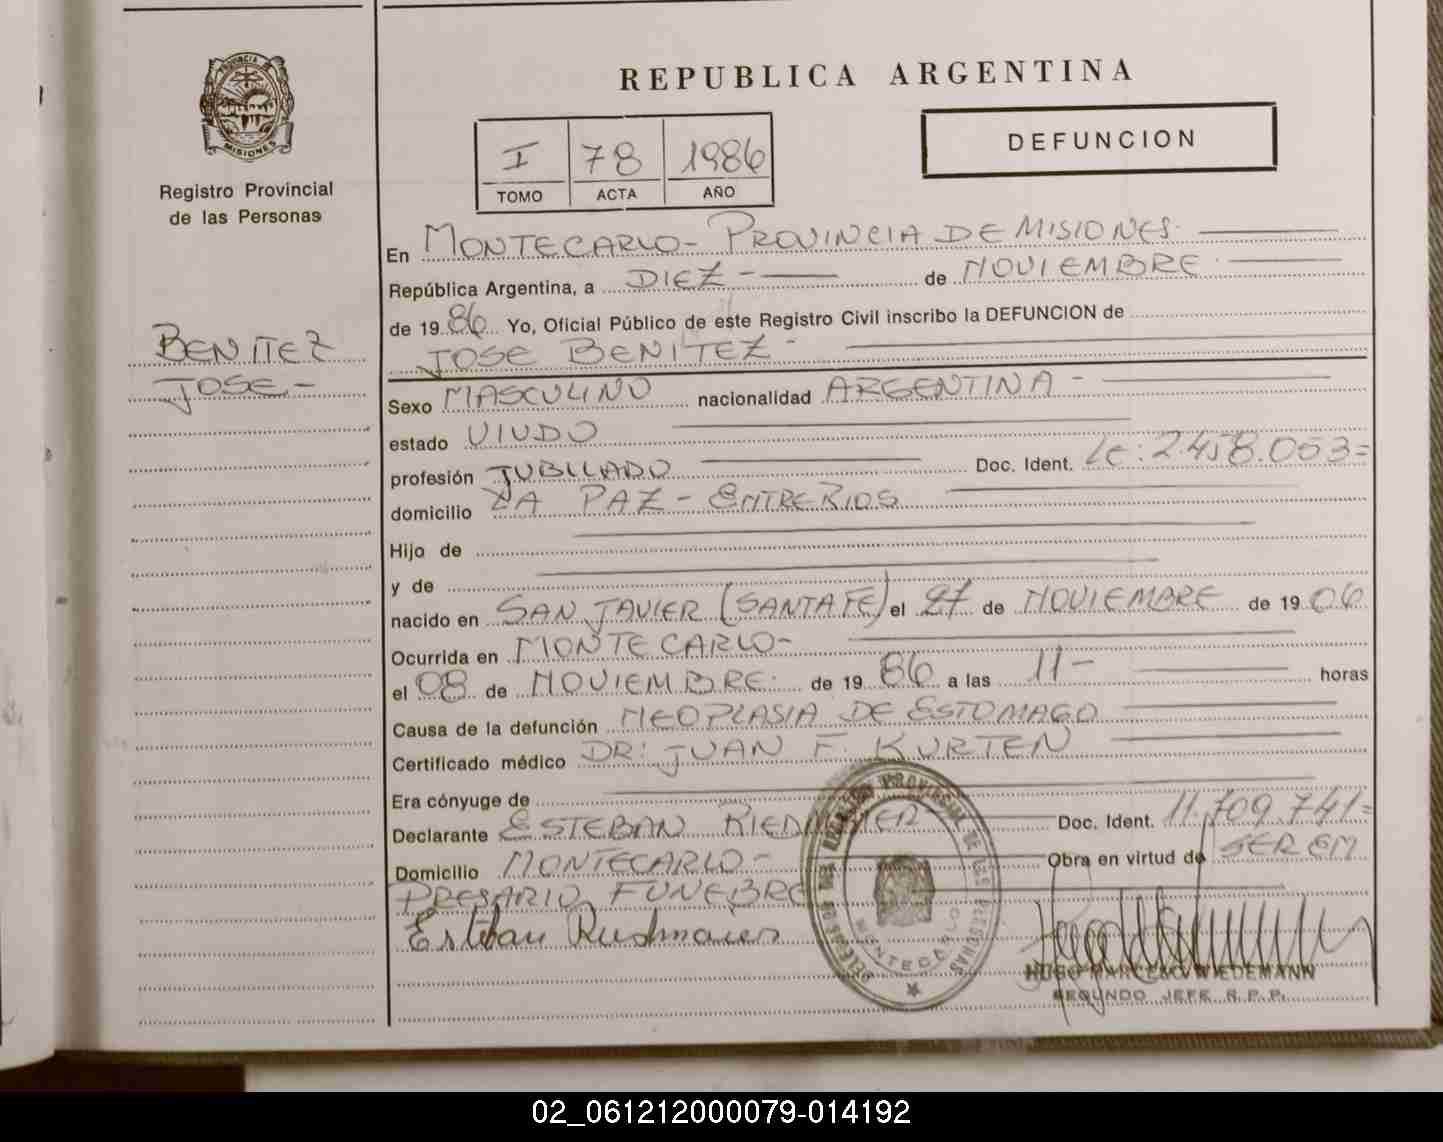 REPUBLICA ARGENTINA
PROVINCIA DE
MISIONES
Registro Provincial
de las Personas
DEFUNCION
I 78 1986
TOMO ACTA AÑO
BENITEZ
JOSE -
En MONTECARLO - PROVINCIA DE MISIONES.
República Argentina, a DIEZ - de NOVIEMBRE.
de 1986 Yo, Oficial Público de este Registro Civil inscribo la DEFUNCION de
JOSE BENITEZ -
Sexo MASCULINO nacionalidad ARGENTINA -
estado VIUDO
profesión JUBILADO Doc. Ident. Lc: 2.458.053=
domicilio LA PAZ - ENTRE RIOS
Hijo de
y de
nacido en SAN JAVIER (SANTA FE) el 27 de NOVIEMBRE de 1906
Ocurrida en MONTECARLO -
el 08 de NOVIEMBRE. de 1986 a las 11 - horas
Causa de la defunción NEOPLASIA DE ESTOMAGO
Certificado médico DR: JUAN F. KURTEN
Era cónyuge de
Declarante ESTEBAN Doc. Ident. 11.709.741=
Domicilio MONTECARLO - Obra en virtud de SER EM
PRESARIO FUNEBRE
Esteban
MONTECARLO
HUGO MARCELO WIEDEMANN
SEGUNDO JEFE R.P.P.
02_061212000079-014192